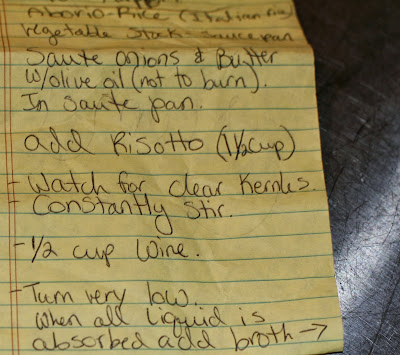 Aborio-Rice (Italian rice)
vegetable Stock-saucepan
Saute onions & Butter
w/olive oil (not to burn).
In saute pan.
add Risotto (1½cup)
- Watch for clear Kernles.
- Constantly Stir.
-1/2 cup Wine.
-Turn very low.
when all Liquid is
absorbed add broth →